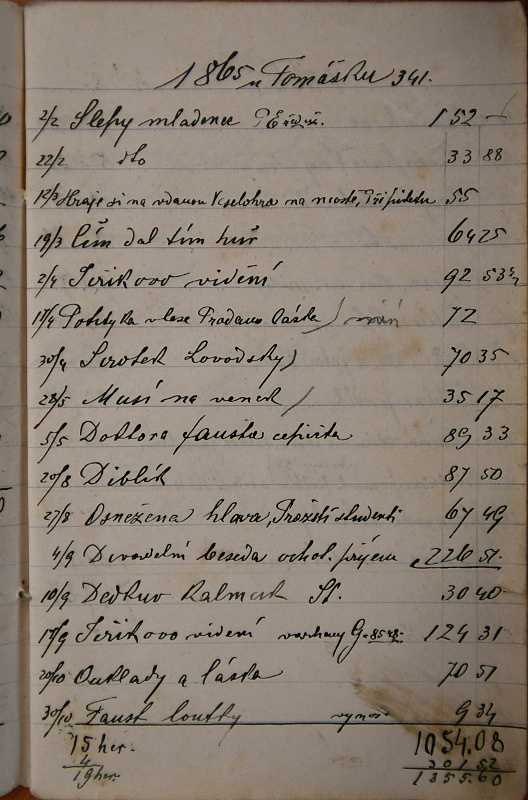 1865 u Tomášku 341.
2/2 Slepy mladenec 152 —
22/2 dto 33 88
12/3 Hraje si na vdanou Veselohra na mostě, 55
19/3 Čím dal tím huř 64 25
2/4 Jiřikovo viděni 92 53½
17/4 Polityka v lese Prodana láska) 72
30/4 Sirotek Lovodsky) 70 35
28/5 Musí na venek / 35 17
5/5 Doktora fausta čepička 89 33
20/8 Diblík 87 50
27/8 Osnežena hlava, Prožstí studenti 67 49
4/9 Divadelní beseda ochot. přijem 226 51.
10/9 Dedkuv Kalmuk St. 30 40
17/9 Jiřikovo viděni varhany G. 85 48. 124 31
20/10 Outlady a láska 70 51
30/10 Faust loutky vynos. 9 34
15 her. 1054.08
4 301 52
19 her. 1355.60